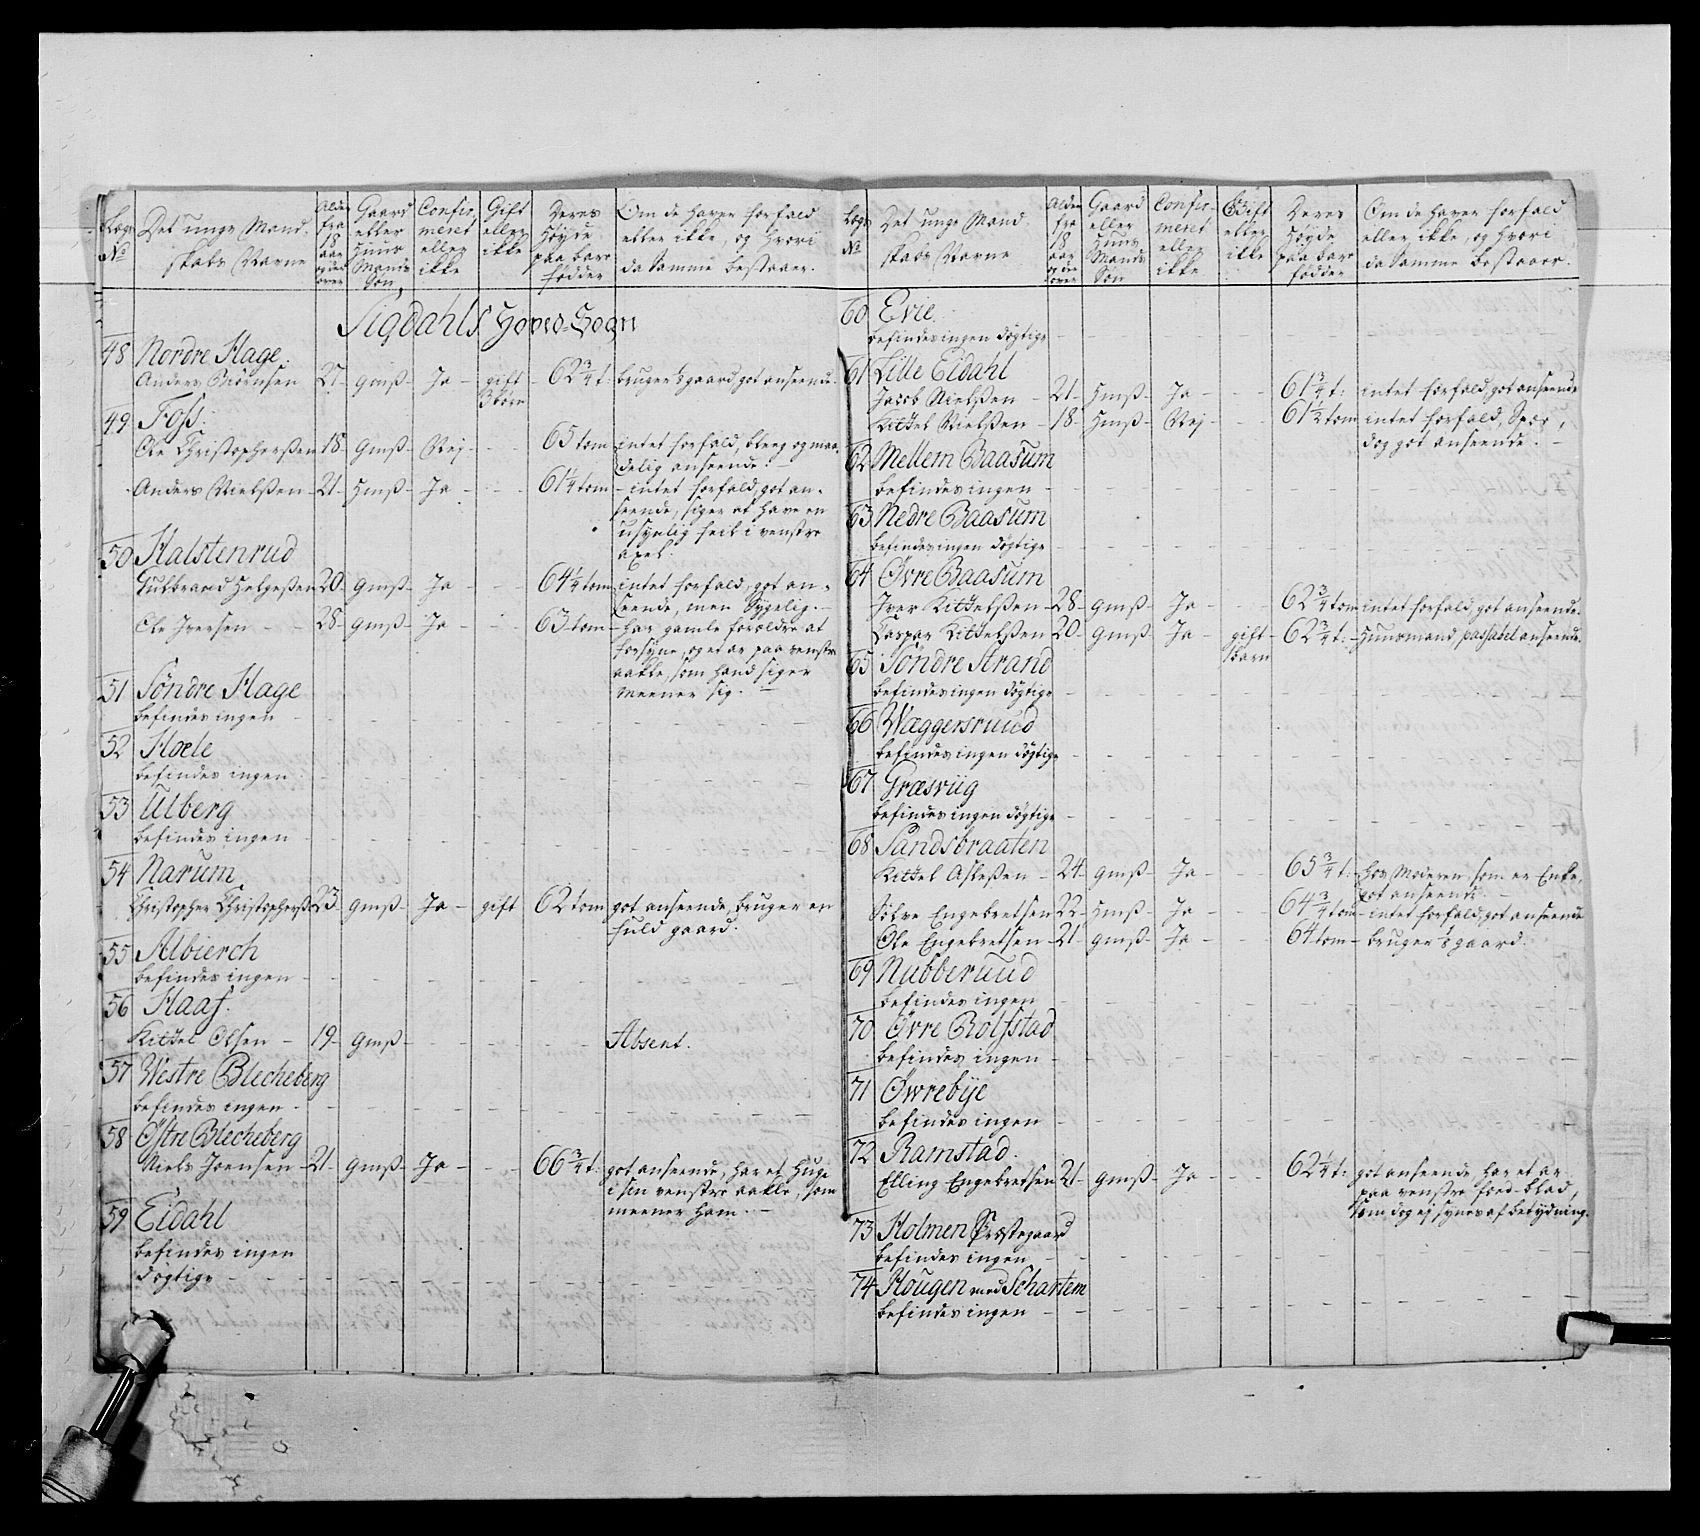 Lægs No
Det unge Mandskabs Navne
Alder fra 18 aar og der over
Gaard eller Huus Mands Søn
Confirmeret eller ikke
Gift eller ikke
Deres Høyde paa bare fødder
Om de haver forfald eller ikke, og hvori da samme bestaaer.
Sigdahls Hoved-Sogn
48 Nordre Hage.
Anders Biørnsen 27 - gmß - Ja - gift 3 børn - 62 3/4 t: bruger gaard got anseende.
49 Foss.
Ole Christophersßen 18 - gmß - Nej - - 65 tom intet forfald, bleeg og maadelig anseende. -
Anders Nielsßen - 21 - Hmß - Ja - - 61 1/4 tom - intet forfald, got anseende, siger at have en usynlig feil i venstre axel.
50 Halstenrud
Gulbrand Helgesßen 20 - gmß - Ja - - 64 1/2 tom intet forfald, got anseende, men Sygelig. -
Ole Iversen - - 28 - gmß - Ja - - 63 tom - har gamle forældre at forsyne, og et ar paa venstre aakle, som hand siger meener sig. -
51 Søndre Hage
befindes ingen
52 Hoele
befindes ingen
53 Ulberg
befindes ingen
54 Narum
Christopher Christophersß: 23 - gmß - Ja - gift 62 1/2 tom got anseende, bruger en fuld gaard.
55 Albierch
befindes ingen
56 Haaf.
Kittel Olsen - 19 - gmß - Absent.
57 Westre Blecheberg
befindes ingen
58 Østre Blecheberg
Niels Joensen - 21 - gmß - Ja - - 66 3/4 t: got anseende, har et Hug i sin venstre aakle, som meener ham. -
59 Eidahl
befindes ingen
døgtige
Lægs No
Det unge Mandskabs Navne
Alder fra 18 aar og der over
Gaard eller Huus Mands Søn
Confirmeret eller ikke
Gift eller ikke
Deres Høyde paa bare fødder
Om de haver forfald eller ikke, og hvori da samme bestaaer.
60 Evie.
befindes ingen døgtige
61 Lille Eidahl
Jacob Nielsßen - 21 - Hmß - Ja - - 61 3/4 t: intet forfald, got anseende
Kittel Nielsßen - 18 - Hmß - Nej - - 61 1/2 tom intet forfald, Spæd, dog got anseende. -
62 Mellem Baasum
befindes ingen
63 Nedre Baasum
befindes ingen døgtige
64 Øvre Baasum
Iver Kittelsßen - 28 - gmß - Ja - - 62 3/4 tom intet forfald, got anseende.
Caspar Kittelsßen 20 - gmß - Ja - gift 1 barn - 62 3/4 t: - Huusmand passabel anseende.
65 Søndre Strand
befindes ingen døgtige
66 Wæggersruud
befindes ingen døgtige
67 Græsviig
befindes ingen døgtige
68 Sandsbraaten
Kittel Aslesßen - 24 - gmß - Ja - - 65 3/4 t: - hos Moderen, som er Enke, got anseende. -
Sølve Engebretsen 22 - Hmß - Ja - - 64 3/4 tom - intet forfald, got anseende
Ole Engebretsen - 21 - gmß - Ja - - 64 tom - bruger gaard.
69 Nubberuud
befindes ingen
70 Øvre Rolfstad
befindes ingen
71 Øwrebye
befindes ingen
72 Ramstad.
Elling Engebretsen 21 - gmß - Ja - - 62 1/4 t: got anseende, har et ar paa venstre foed-blad, som dog ej synes af betydning.
73 Holmen Præstegaard
befindes ingen
74 Hougen med Schartem
befindes ingen